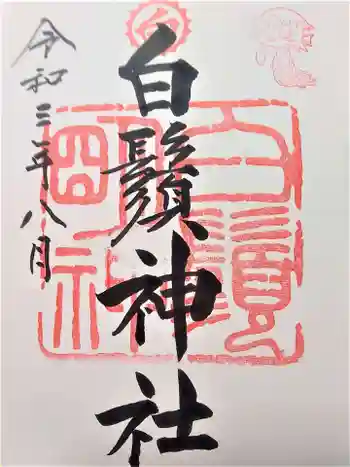 白鬚神社
令和三年八月